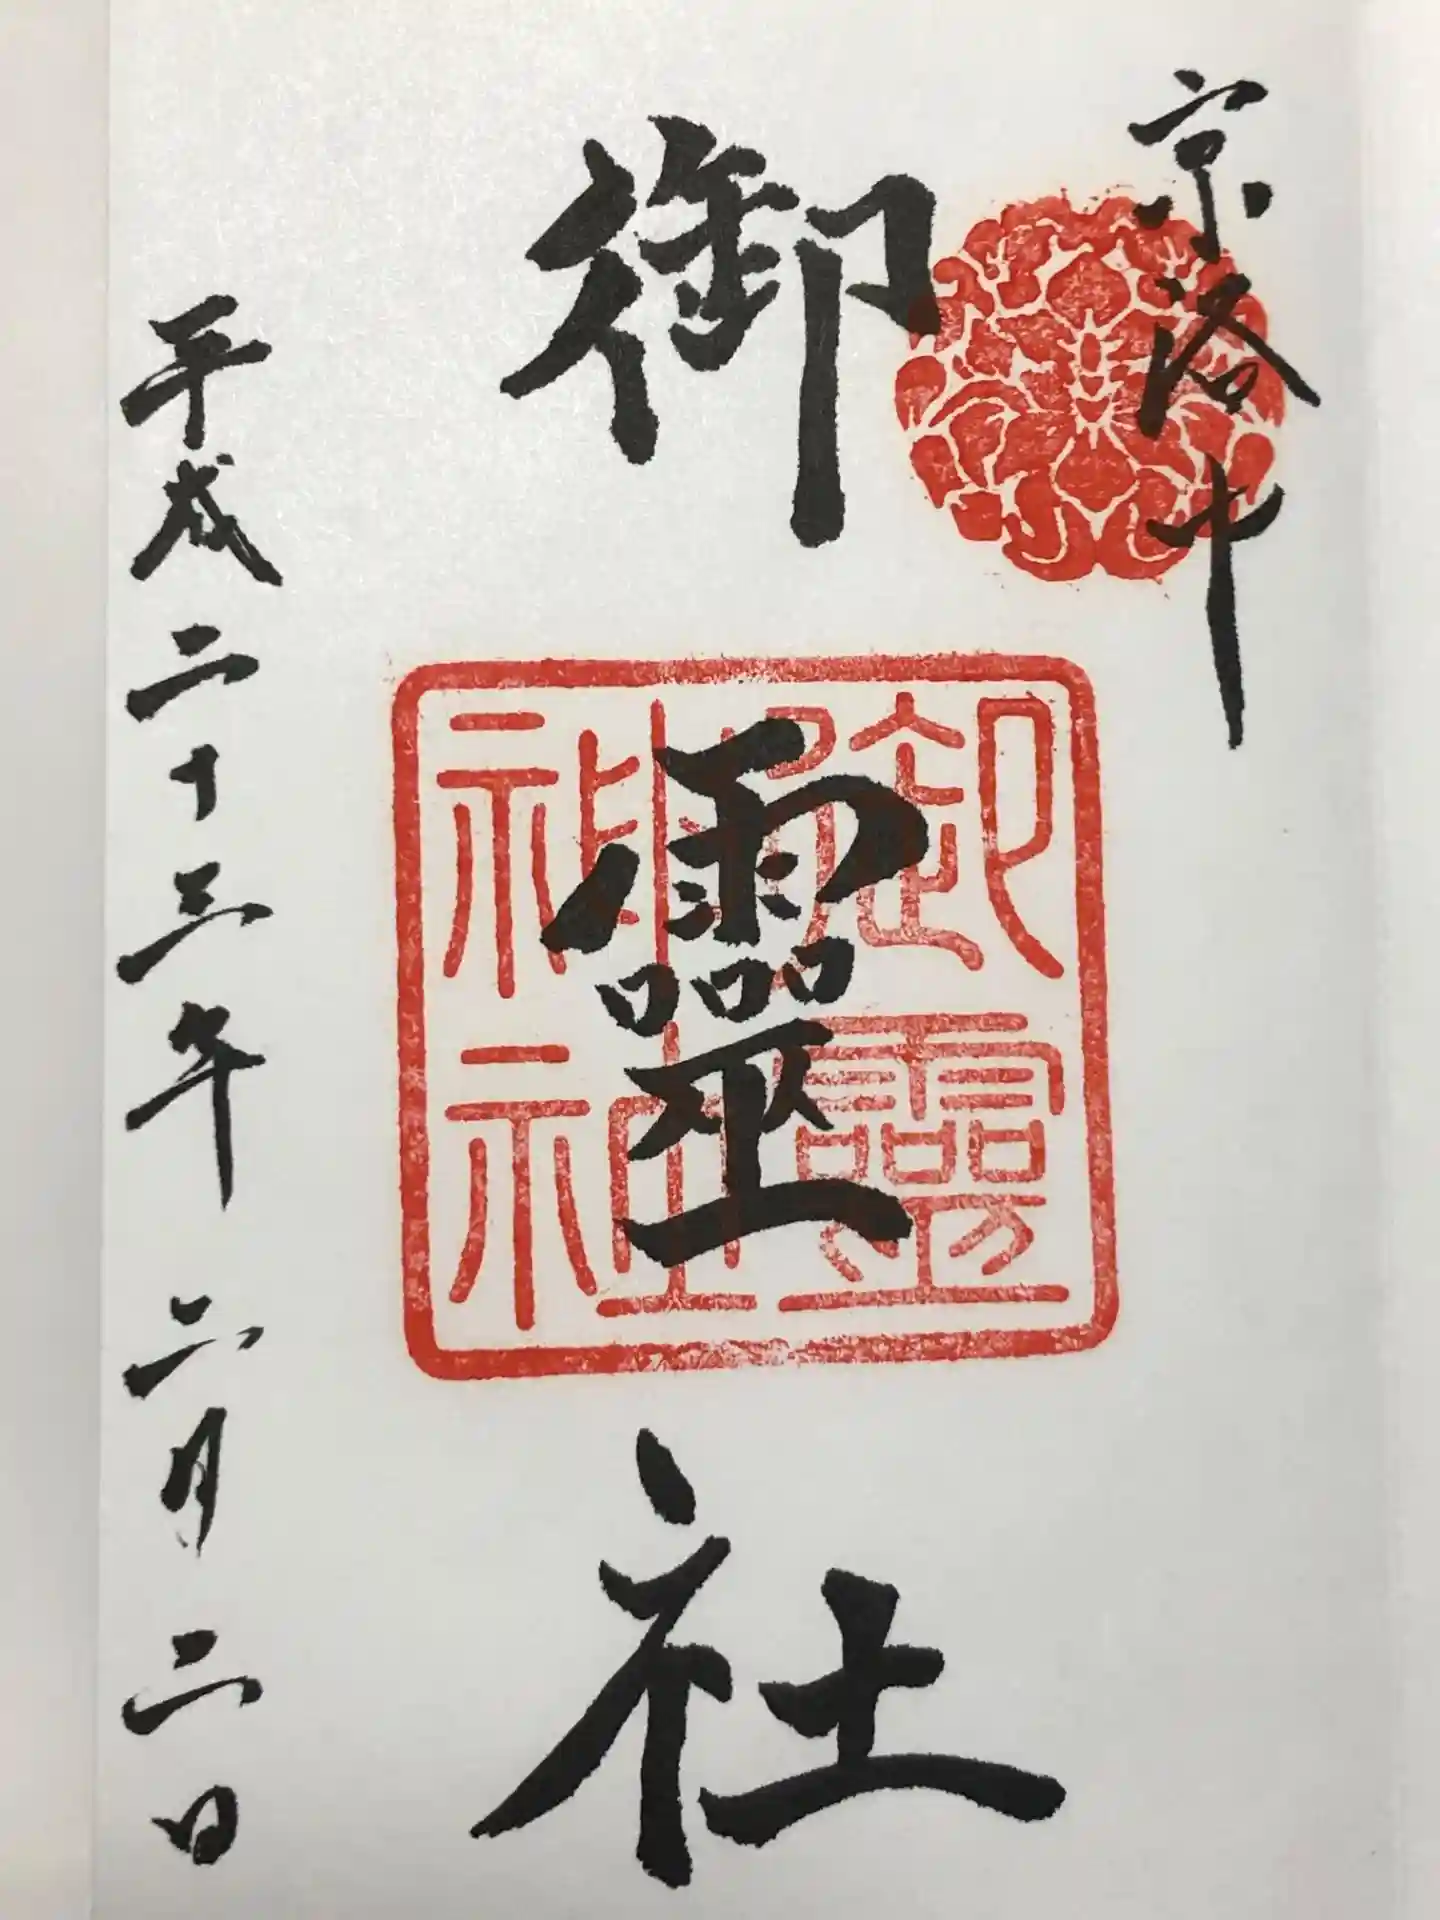 京洛中
御靈社
御靈
神社
平成二十三年二月二日